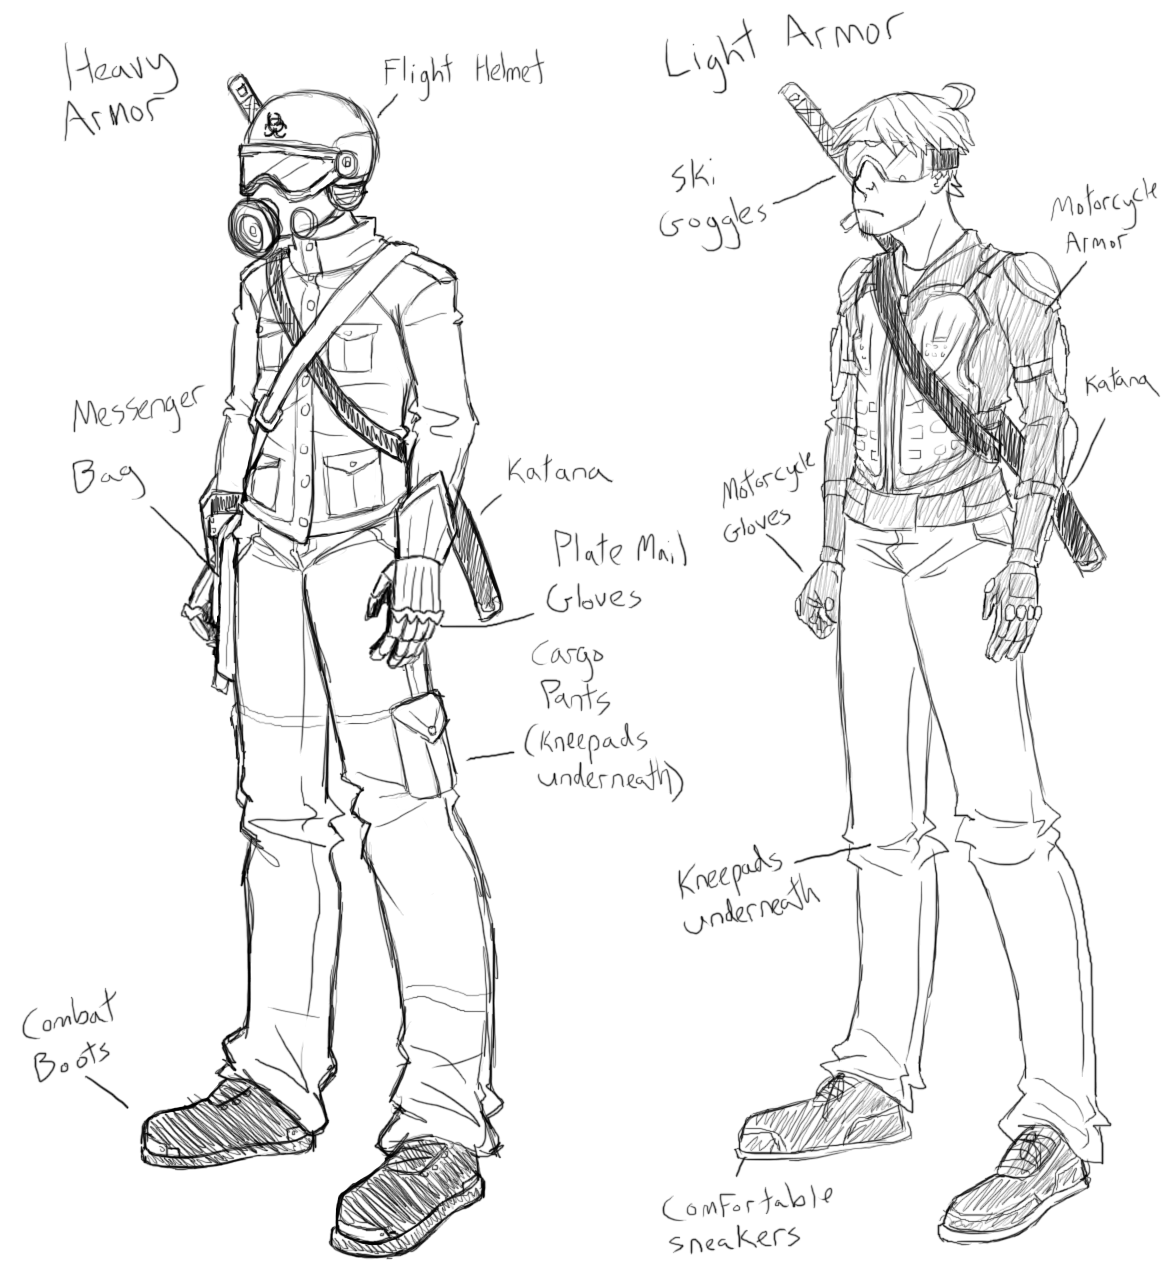 Heavy
Armor
Flight Helmet
Messenger
Bag
Katana
Plate Mail
Gloves
Cargo
Pants
(Kneepads
underneath)
Combat
Boots
Light Armor
Ski
Goggles
Motorcycle
Armor
Katana
Motorcycle
Gloves
Kneepads
underneath
Comfortable
sneakers